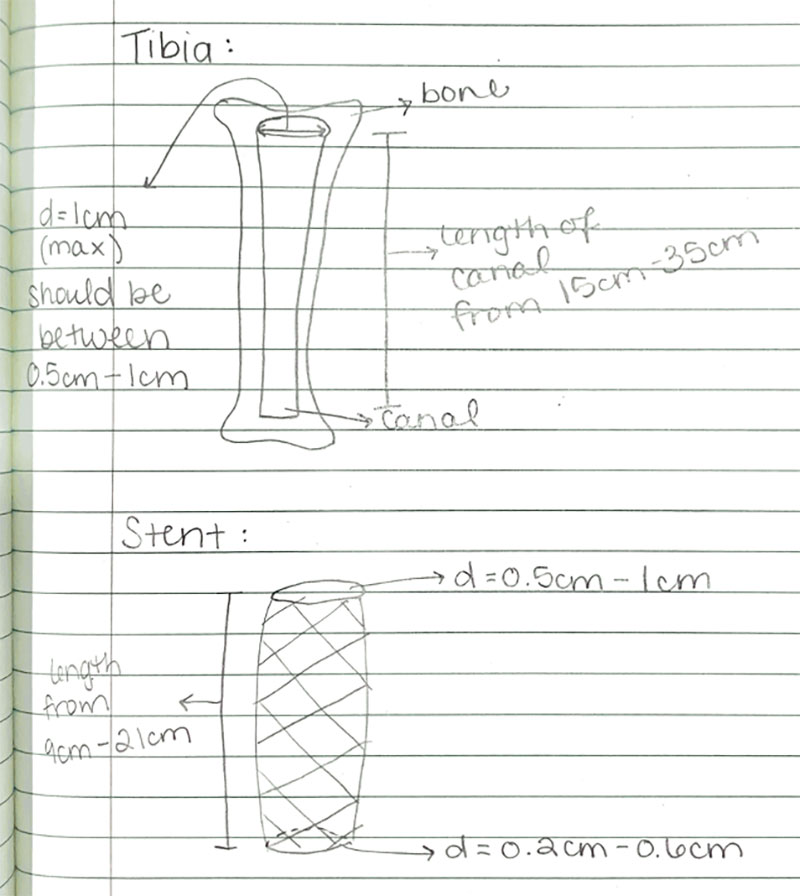 Tibia:
bone
d=1cm
(max)
should be
between
0.5cm-1cm
length of
canal
from 15cm-35cm
canal
Stent:
d=0.5cm-1cm
length
from
9cm-21cm
d=0.2cm-0.6cm